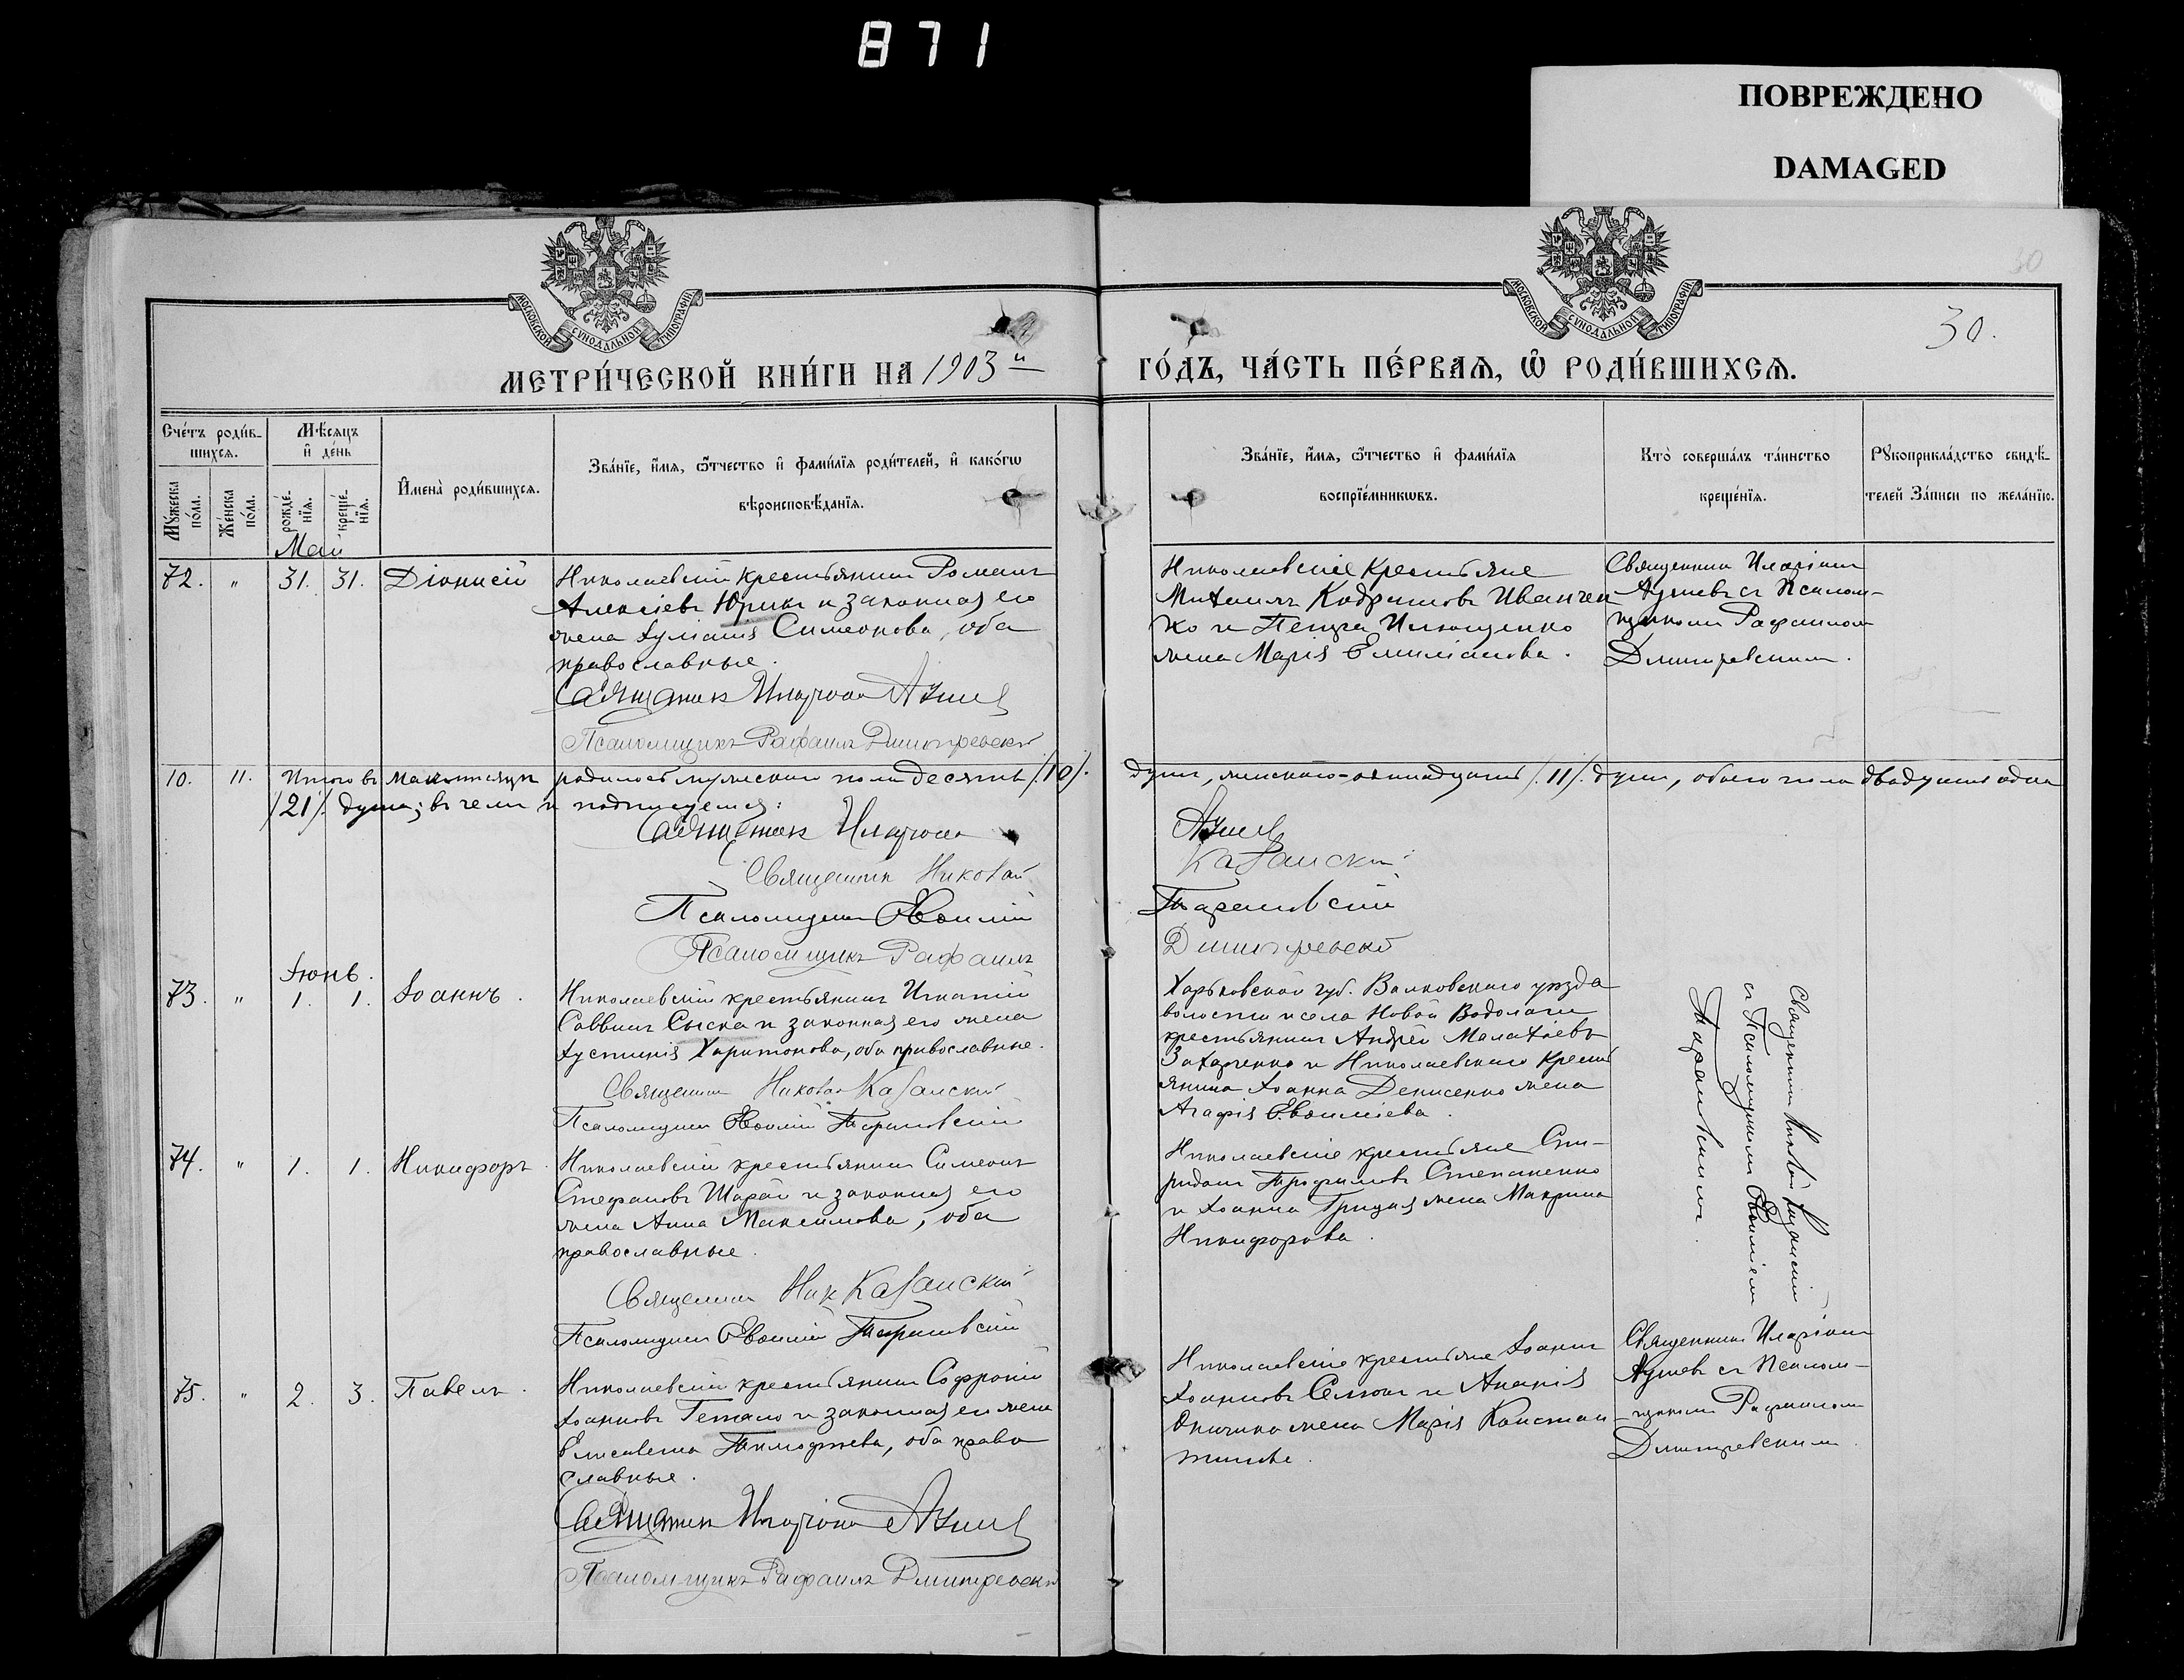 871
ПОВРЕЖДЕНО
DAMAGED
МОСКОВСКОЙ СУНОДАЛЬНОЙ ТИПОГРАФІИ
МОСКОВСКОЙ СУНОДАЛЬНОЙ ТИПОГРАФІИ
30
30.
МЕТРИ́ЧЕСКОЙ КНИ́ГИ НА 1903 й
ГО́ДЪ, ЧА́СТЬ ПЕ́РВАѦ, Ѡ҆ РОДИ́ВШИХСѦ.
Сче́тъ роди́в-
шихсѧ.
Мꙋ́жеска по́ла.
Же́нска по́ла.
Мѣ́сѧцъ
и҆ де́нь
рожде́-
нїѧ.
креще́-
нїѧ.
И҆мена̀ роди́вшихсѧ.
Зва́нїе, и҆́мѧ, ѻ҆́тчество и҆ фами́лїѧ роди́телей, и҆ како́гѡ
вѣроисповѣ́данїѧ.
Зва́нїе, и҆́мѧ, ѻ҆́тчество и҆ фами́лїѧ
воспрїе́мникѡвъ.
Кто̀ соверша́лъ та́инство
креще́нїѧ.
Рꙋкоприкла́дство свидѣ́-
телей За́писи по жела́нїю.
Май
72. " 31. 31. Діонисій
Николаевскій крестьянинъ Романъ
Алексіевъ Юрикъ и законная его
жена Іуліанія Симеонова, оба
православные.
Священникъ Иларіонъ
Псаломщикъ Рафаилъ Дмитревскій
Николаевскіе крестьяне
Михаилъ Кодратовъ Иванчен
ко и Петра Ильющенко
жена Марія Емиліанова.
Священникъ Иларіонъ
съ Псалом-
щикомъ Рафаиломъ
Дмитревскимъ.
10. 11. Итого въ Маѣ мѣсяцѣ родилось мужескаго пола десять /10/.
душъ, женскаго одиннадцать /11/. душъ, обоего пола двадцать одна
/21/. душа; въ чемъ и подписуемся:
Священникъ Иларіонъ
Священникъ Николай Казанскій
Псаломщикъ Евѳимій Тарановскій
Псаломщикъ Рафаилъ Дмитревскій
Іюнь.
73. " 1. 1. Іоаннъ.
Николаевскій крестьянинъ Игнатій
Саввинъ Сыска и законная его жена
Іустинія Харитонова, оба православные.
Священникъ Николай Казанскій
Псаломщикъ Евѳимій Тарановскій
Харьковской губ. Валковскаго уѣзда
волости и села Новой Водолаги
крестьянинъ Андрей Малахіевъ
Захарченко и Николаевскаго крестья
янина Іоанна Денисенко жена
Агафія Евѳиміева.
Священникъ Николай Казанскій
съ Псаломщикомъ Евѳиміемъ
Тарановскимъ.
74. " 1. 1. Никифоръ.
Николаевскій крестьянинъ Симеонъ
Стефановъ Шарай и законная его
жена Анна Максимова, оба
православные.
Священникъ Ник Казанскій
Псаломщикъ Евѳимій Тарановскій
Николаевскіе крестьяне Спи-
ридонъ Трофимовъ Степаненко
и Іоанна Грицая жена Макрина
Никифорова.
75. " 2. 3. Павелъ.
Николаевскій крестьянинъ Софроній
Іоанновъ Гетало и законная его жена
Елисавета Тимофеева, оба право
славные.
Священникъ Иларіонъ
Псаломщикъ Рафаилъ Дмитревскій
Николаевскіе крестьяне Іоаннъ
Іоанновъ и Ананія
жена Марія Констан
тинова.
Священникъ Иларіонъ
съ Псалом-
щикомъ Рафаиломъ
Дмитревскимъ.